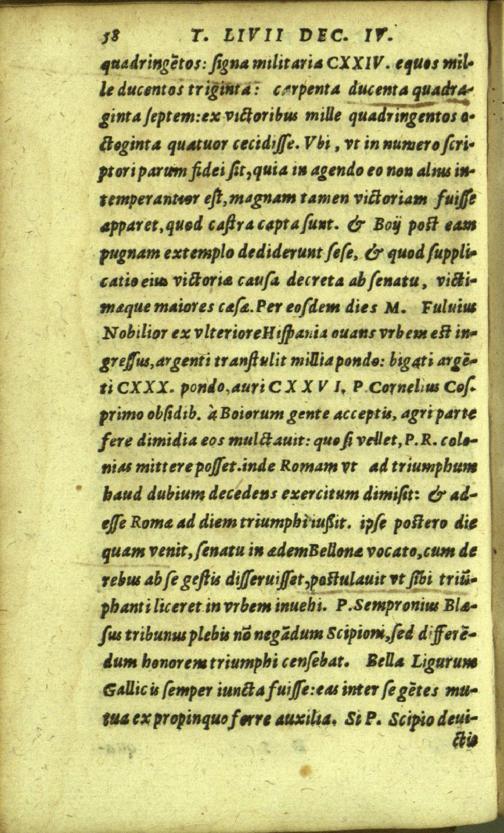 58 T. LIVII DEC. IV.
quadringẽtos: signa militaria CXXIV. equos mil-
le ducentos triginta: carpenta ducenta quadra-
ginta septem: ex victoribus mille quadringentos o-
ctoginta quatuor cecidisse. Vbi, vt in numero scri-
ptori parum fidei sit, quia in agendo eo non alius in-
temperantior est, magnam tamen victoriam fuisse
apparet, quod castra capta sunt. & Boij post eam
pugnam extemplo dediderunt sese, & quod suppli-
catio eius victoriæ causa decreta ab senatu, victi-
mæque maiores cæsæ. Per eosdem dies M. Fuluius
Nobilior ex vlteriore Hispania ouans vrbem est in-
gressus, argenti transtulit millia pondo: bigati argẽ-
ti CXXX. pondo, auri CXXVI. P. Cornelius Cos.
primo obsidib. à Boiorum gente acceptis, agri parte
fere dimidia eos mulctauit: quo si vellet, P. R. colo-
nias mittere posset. inde Romam vt ad triumphum
haud dubium decedens exercitum dimisit: & ad-
esse Romæ ad diem triumphi iußit. ipse postero die
quam venit, senatu in ædem Bellonæ vocato, cum de
rebus ab se gestis disseruisset, postulauit vt sibi triũ-
phanti liceret in vrbem inuehi. P. Sempronius Blæ-
sus tribunus plebis nõ negãdum Scipioni, sed differẽ-
dum honorem triumphi censebat. Bella Ligurum
Gallicis semper iuncta fuisse: eas inter se gẽtes mu-
tua ex propinquo ferre auxilia. Si P. Scipio deui-
ctis